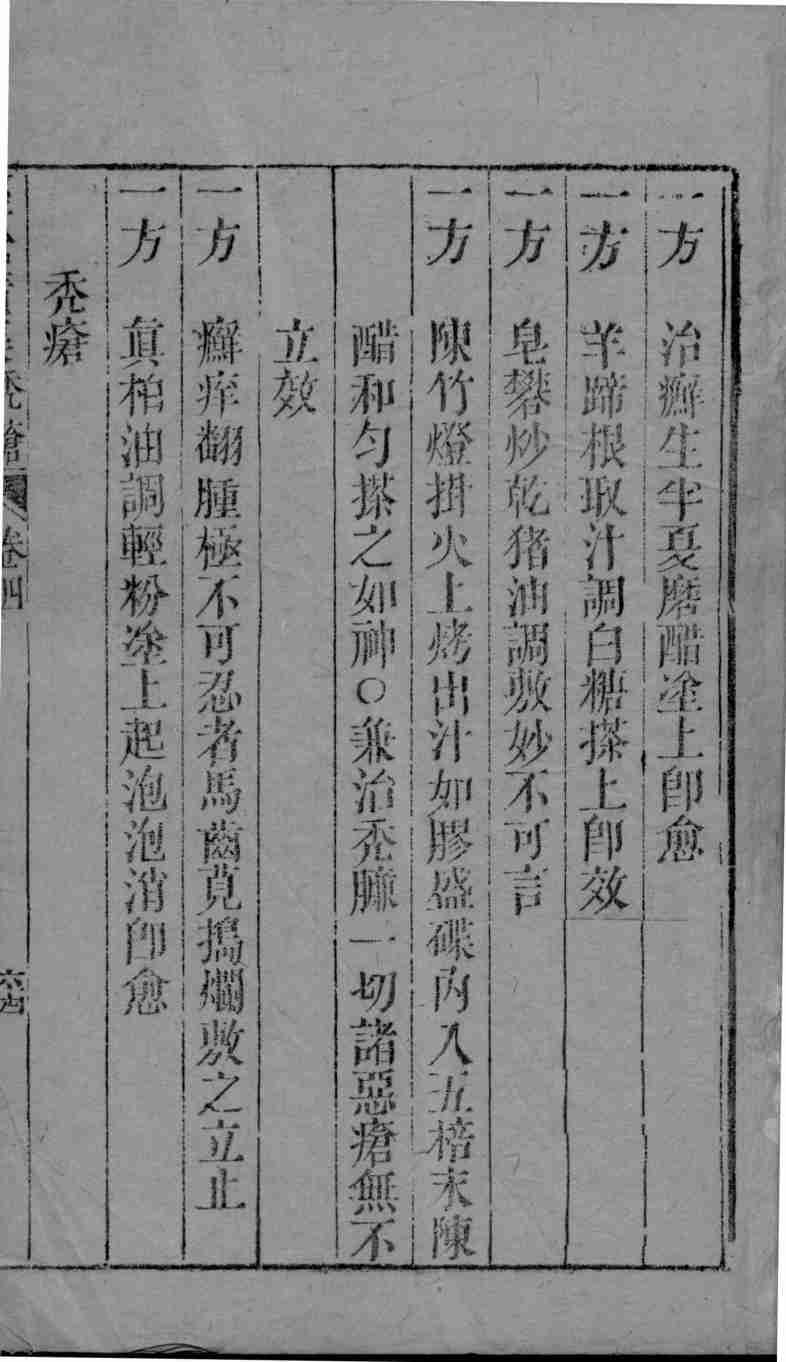 一方　治癬生半夏磨醋塗上卽愈
一方　羊蹄根取汁調白糖搽上卽效
一方　皂礬炒乾猪油調敷妙不可言
一方　陳竹燈掛火上烤出汁如膠盛碟內入五棓末陳
醋和勻搽之如神○兼治禿臁一切諸惡瘡無不
立效
一方　癬痒翻腫極不可忍者馬齒莧搗爛敷之立止
一方　眞柏油調輕粉塗上起泡泡消卽愈
禿瘡
禿瘡　卷四　六十四